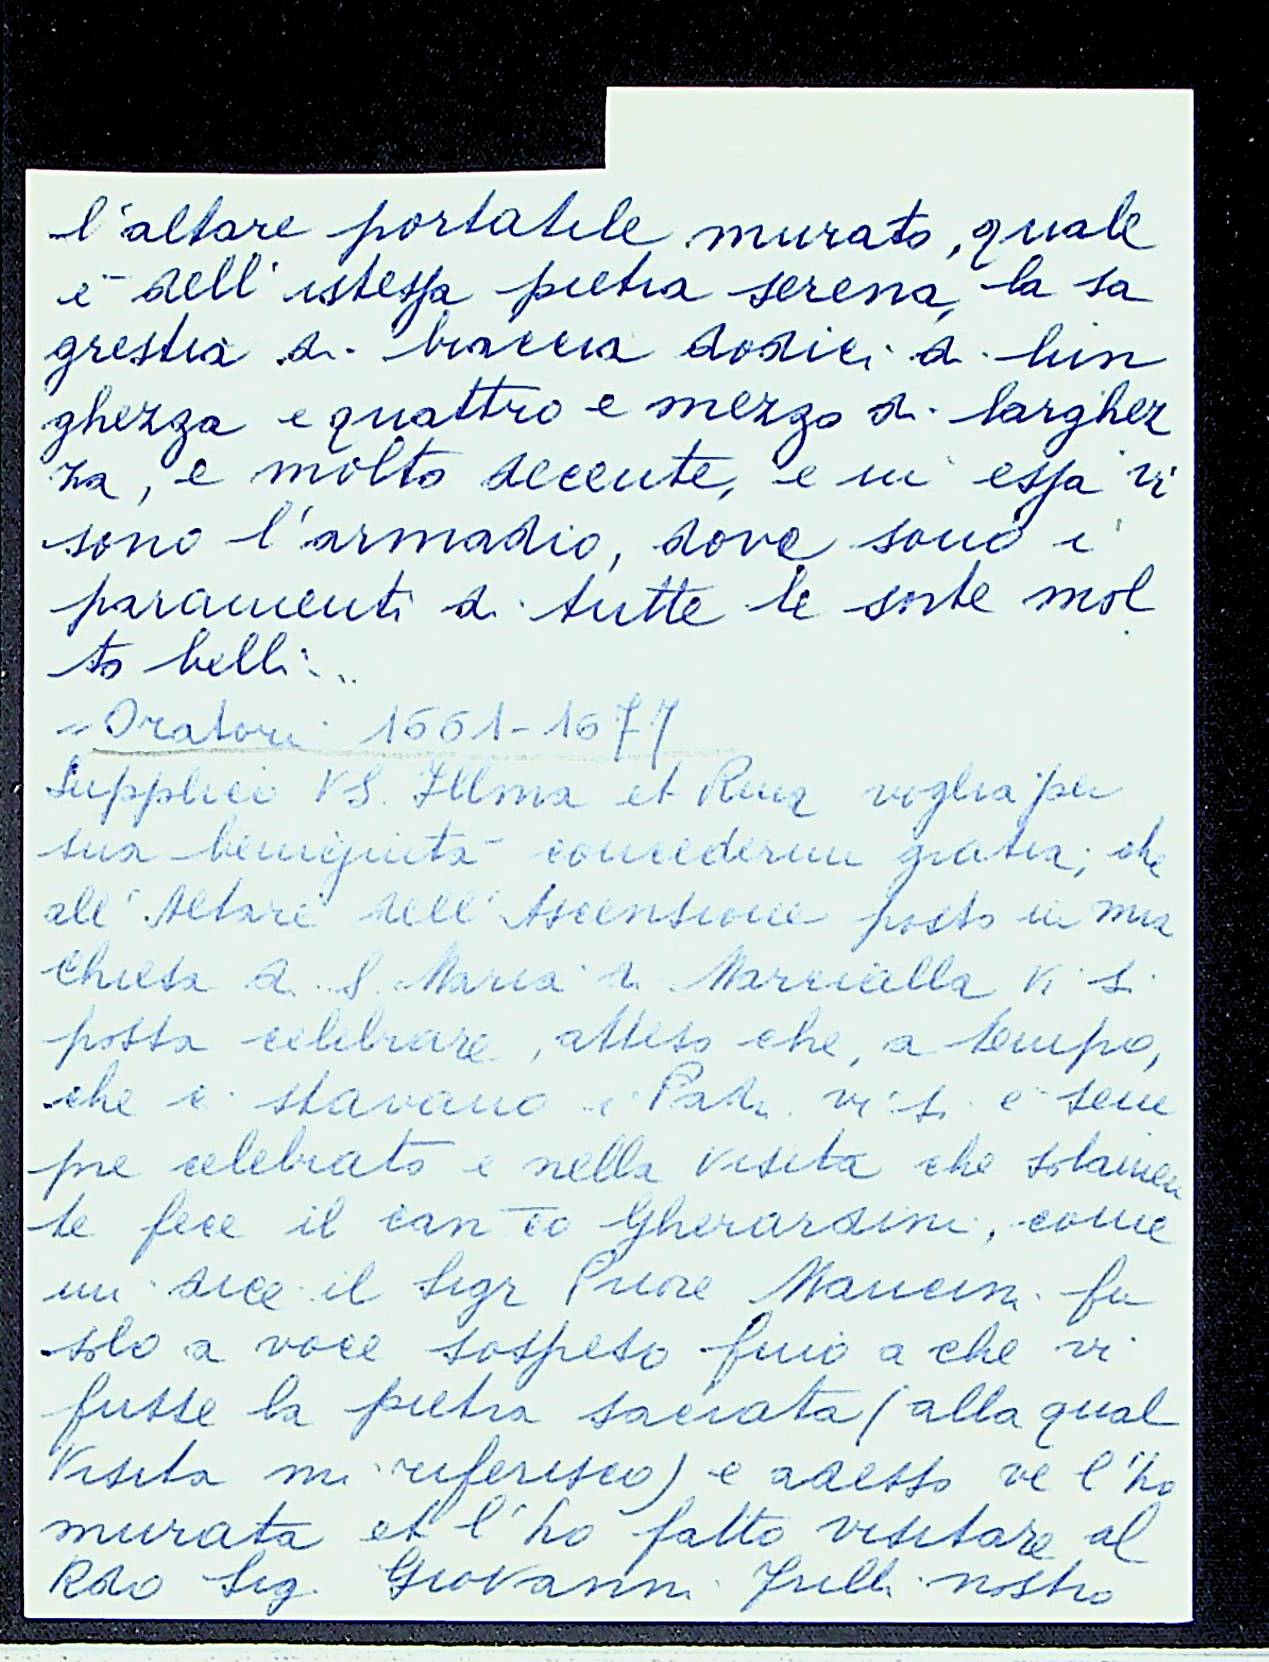 l'altare portatile murato, quale
è dell'istessa pietra serena, la sa
grestia di braccia dodici di lun
ghezza e quattro e mezzo di larghez
za, è molto decente, e in essa vi
sono l'armadio, dove sono i
paramenti di tutte le sorte mol
to belli...
"Oratori 1661-1677
Supplico VS. Illma et Rma voglia per
sua benignità concedermi gratia, che
all'Altare dell'Ascensione posto in mia
Chiesa di S. Maria di Marcialla vi si
possa celebrare, atteso che, a tempo,
che ci stavano i Padri vi si è sem
pre celebrato e nella visita che solamen
te fece il can co Gherardini, come
mi dice il Sigr Priore Mancini fu
solo a voce sospeso fino a che vi
fusse la pietra sacrata (alla qual
Visita mi riferisco) e adesso ve l'ho
murata et l'ho fatto visitare al
Rdo Sig. Giovanni nostro